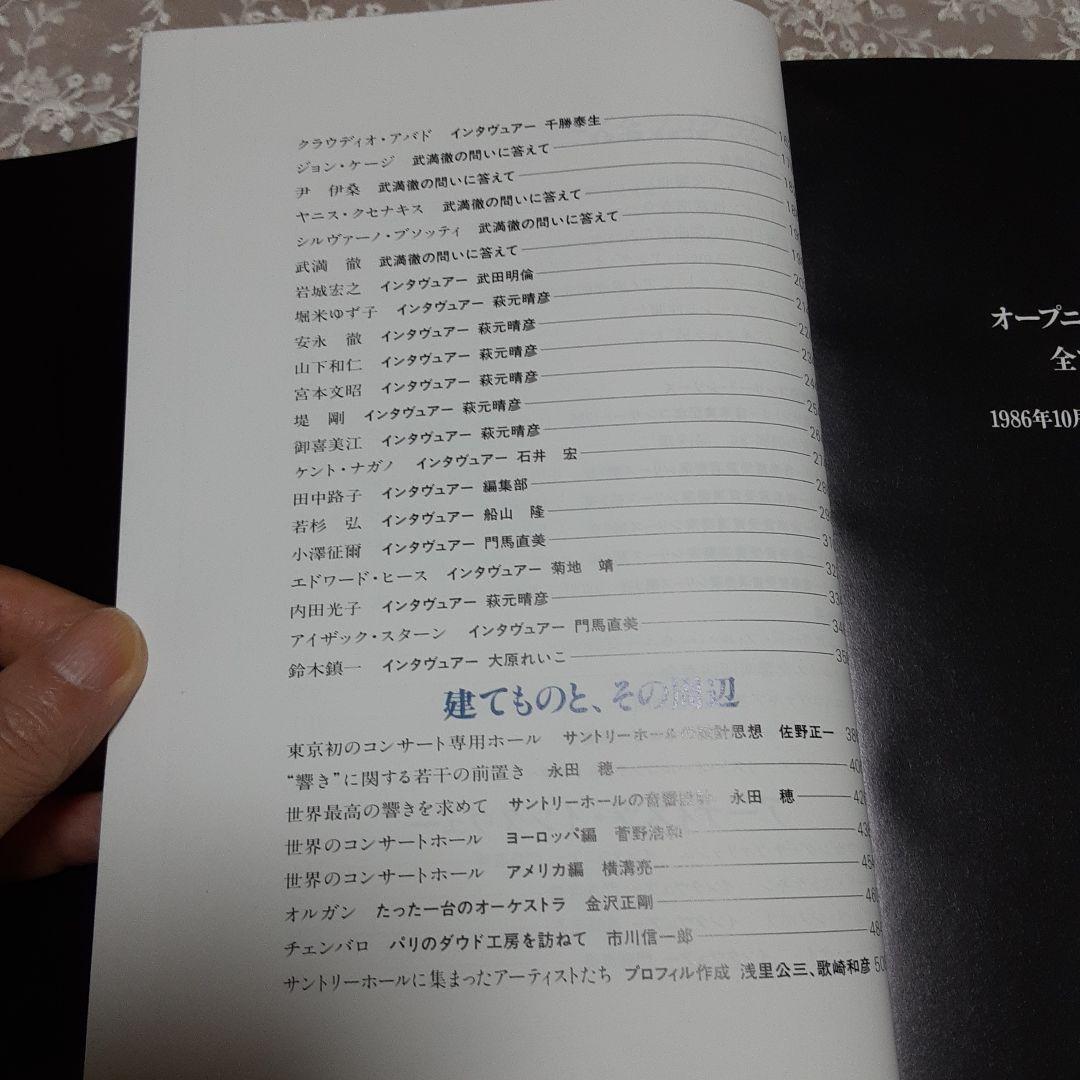 クラウディオ・アバド インタヴュアー 千勝泰生
ジョン・ケージ 武満徹の問いに答えて
尹 伊桑 武満徹の問いに答えて
ヤニス・クセナキス 武満徹の問いに答えて
シルヴァーノ・ブソッティ 武満徹の問いに答えて
武満 徹 武満徹の問いに答えて
岩城宏之 インタヴュアー 武田明倫
堀米ゆず子 インタヴュアー 萩元晴彦
安永 徹 インタヴュアー 萩元晴彦
山下和仁 インタヴュアー 萩元晴彦
宮本文昭 インタヴュアー 萩元晴彦
堤 剛 インタヴュアー 萩元晴彦
御喜美江 インタヴュアー 萩元晴彦
ケント・ナガノ インタヴュアー 石井 宏
田中路子 インタヴュアー 編集部
若杉 弘 インタヴュアー 船山 隆
小澤征爾 インタヴュアー 門馬直美
エドワード・ヒース インタヴュアー 菊地 靖
内田光子 インタヴュアー 萩元晴彦
アイザック・スターン インタヴュアー 門馬直美
鈴木鎮一 インタヴュアー 大原れいこ
建てものと、その周辺
東京初のコンサート専用ホール サントリーホールの設計思想 佐野正一
“響き”に関する若干の前置き 永田 穂
世界最高の響きを求めて サントリーホールの音響設計 永田 穂
世界のコンサートホール ヨーロッパ編 菅野浩和
世界のコンサートホール アメリカ編 横溝亮一
オルガン たった一台のオーケストラ 金沢正剛
チェンバロ パリのダウド工房を訪ねて 市川信一郎
サントリーホールに集まったアーティストたち プロフィル作成 浅里公三、歌崎和彦
オープニ
全
1986年10月